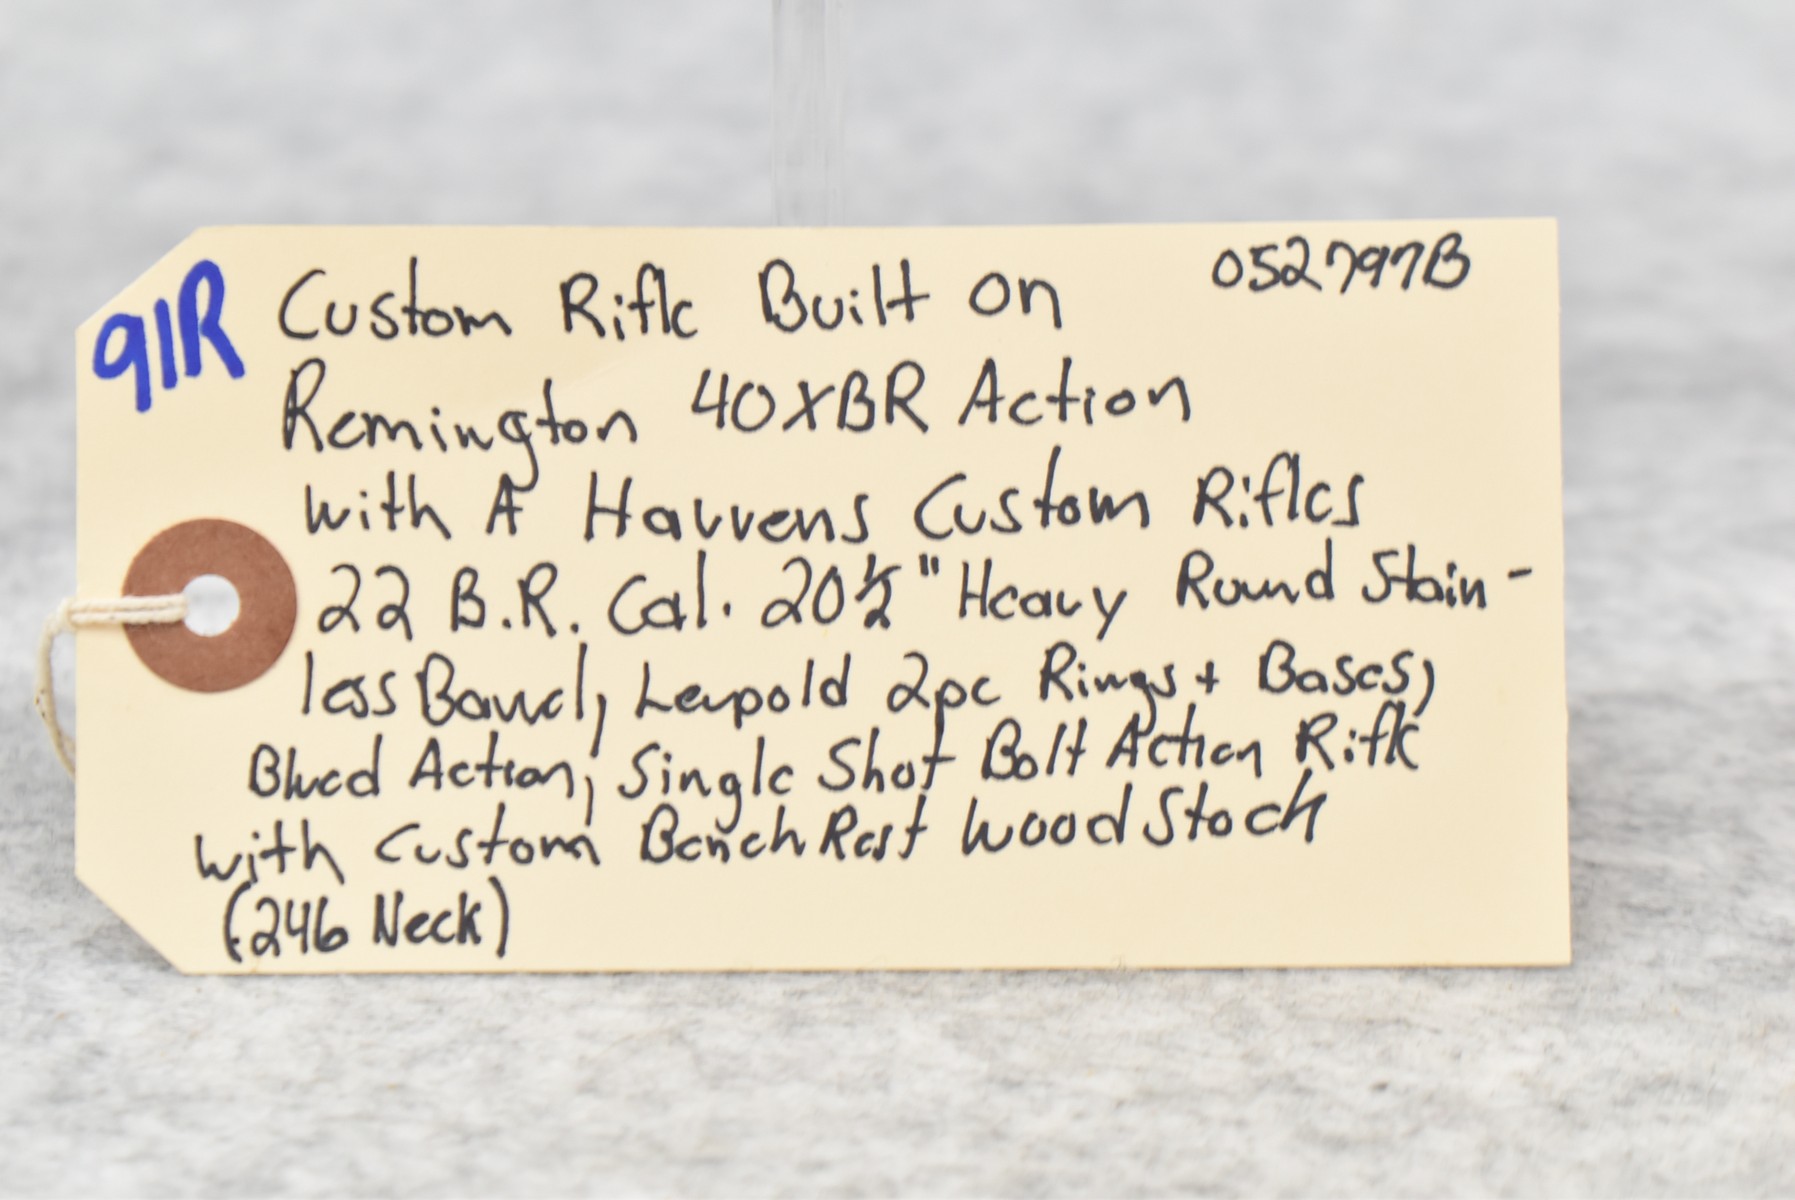 91R
Custom Rifle Built on 052797B
Remington 40XBR Action
with A Havvens Custom Rifles
22 B.R. Cal. 20½" Heavy Round Stain-
less Barrel, Leupold 2pc Rings + Bases,
Blued Action, Single Shot Bolt Action Rifle
with Custom Bench Rest Wood Stock
(.246 Neck)